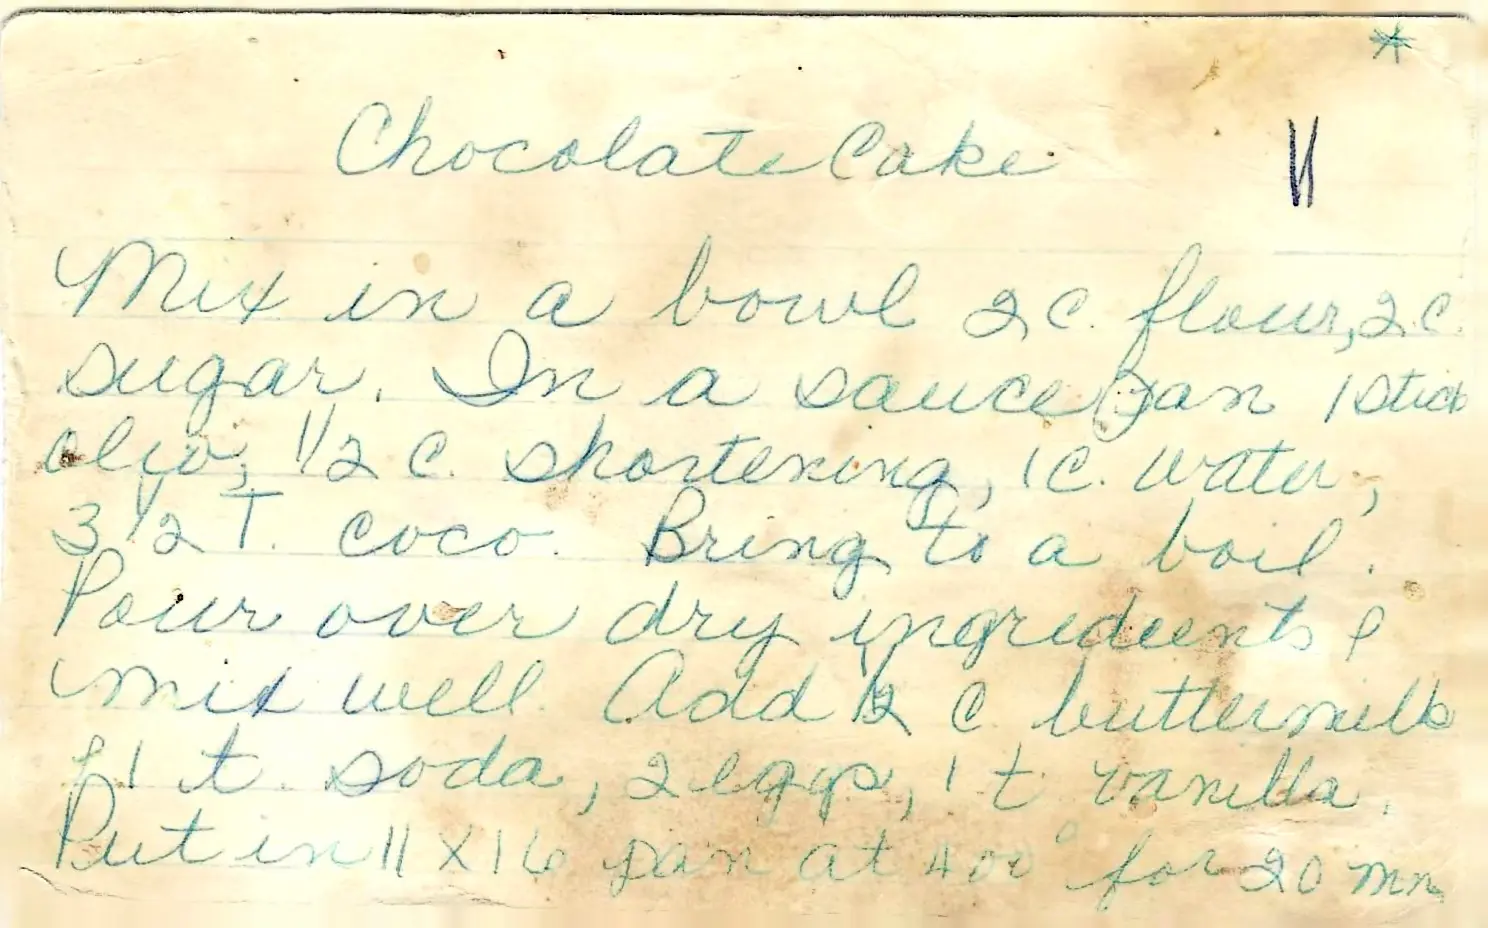 *
Chocolate Cake
11
Mix in a bowl 2 c. flour, 2 c.
sugar. In a sauce pan 1 stick
oleo, 1/2 c. shortening, 1 c. water,
3 1/2 T. coco. Bring to a boil.
Pour over dry ingredients &
mix well. Add 1/2 c buttermilk
& 1 t. soda, 2 eggs, 1 t. vanilla.
Put in 11 X 16 pan at 400° for 20 mn